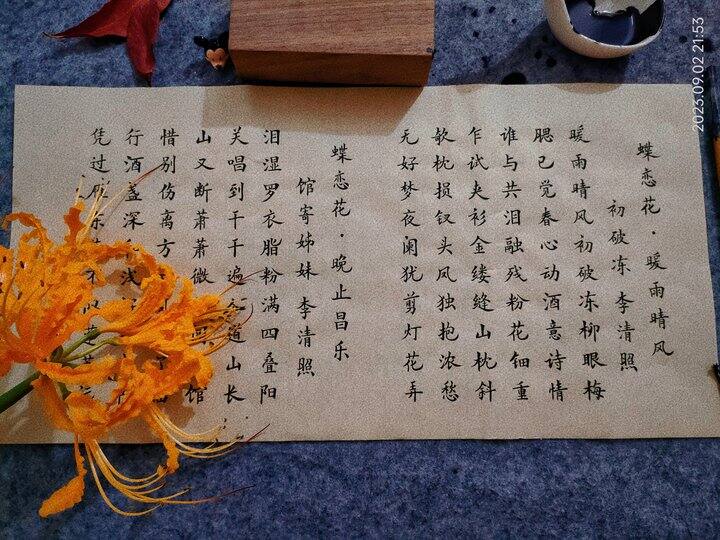 蝶恋花·暖雨晴风
初破冻 李清照
暖雨晴风初破冻柳眼梅
腮已觉春心动酒意诗情
谁与共泪融残粉花钿重
乍试夹衫金缕缝山枕斜
欹枕损钗头凤独抱浓愁
无好梦夜阑犹剪灯花弄
蝶恋花·晚止昌乐
馆寄姊妹 李清照
泪湿罗衣脂粉满四叠阳
关唱到千千遍道山长
山又断萧萧微馆
惜别伤离方
行酒盏深浅
凭过雁东不似
2023.09.02 21:53